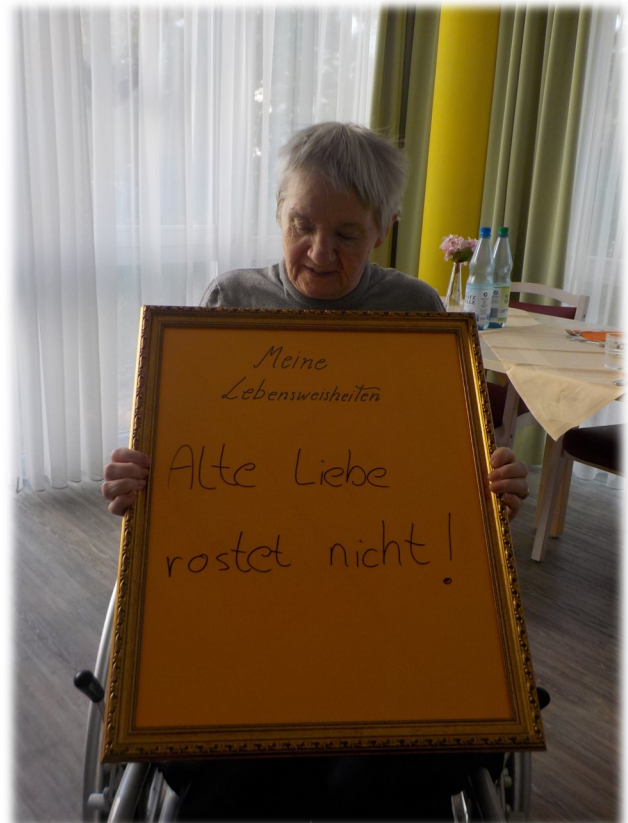 Meine
Lebensweisheiten
Alte Liebe
rostet nicht!